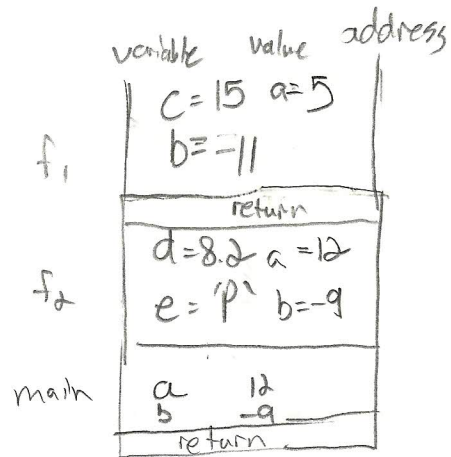 variable value address
f1
c = 15 a = 5
b = -11
return
f2
d = 8.2 a = 12
e = 'P' b = -9
main
a 12
b -9
return